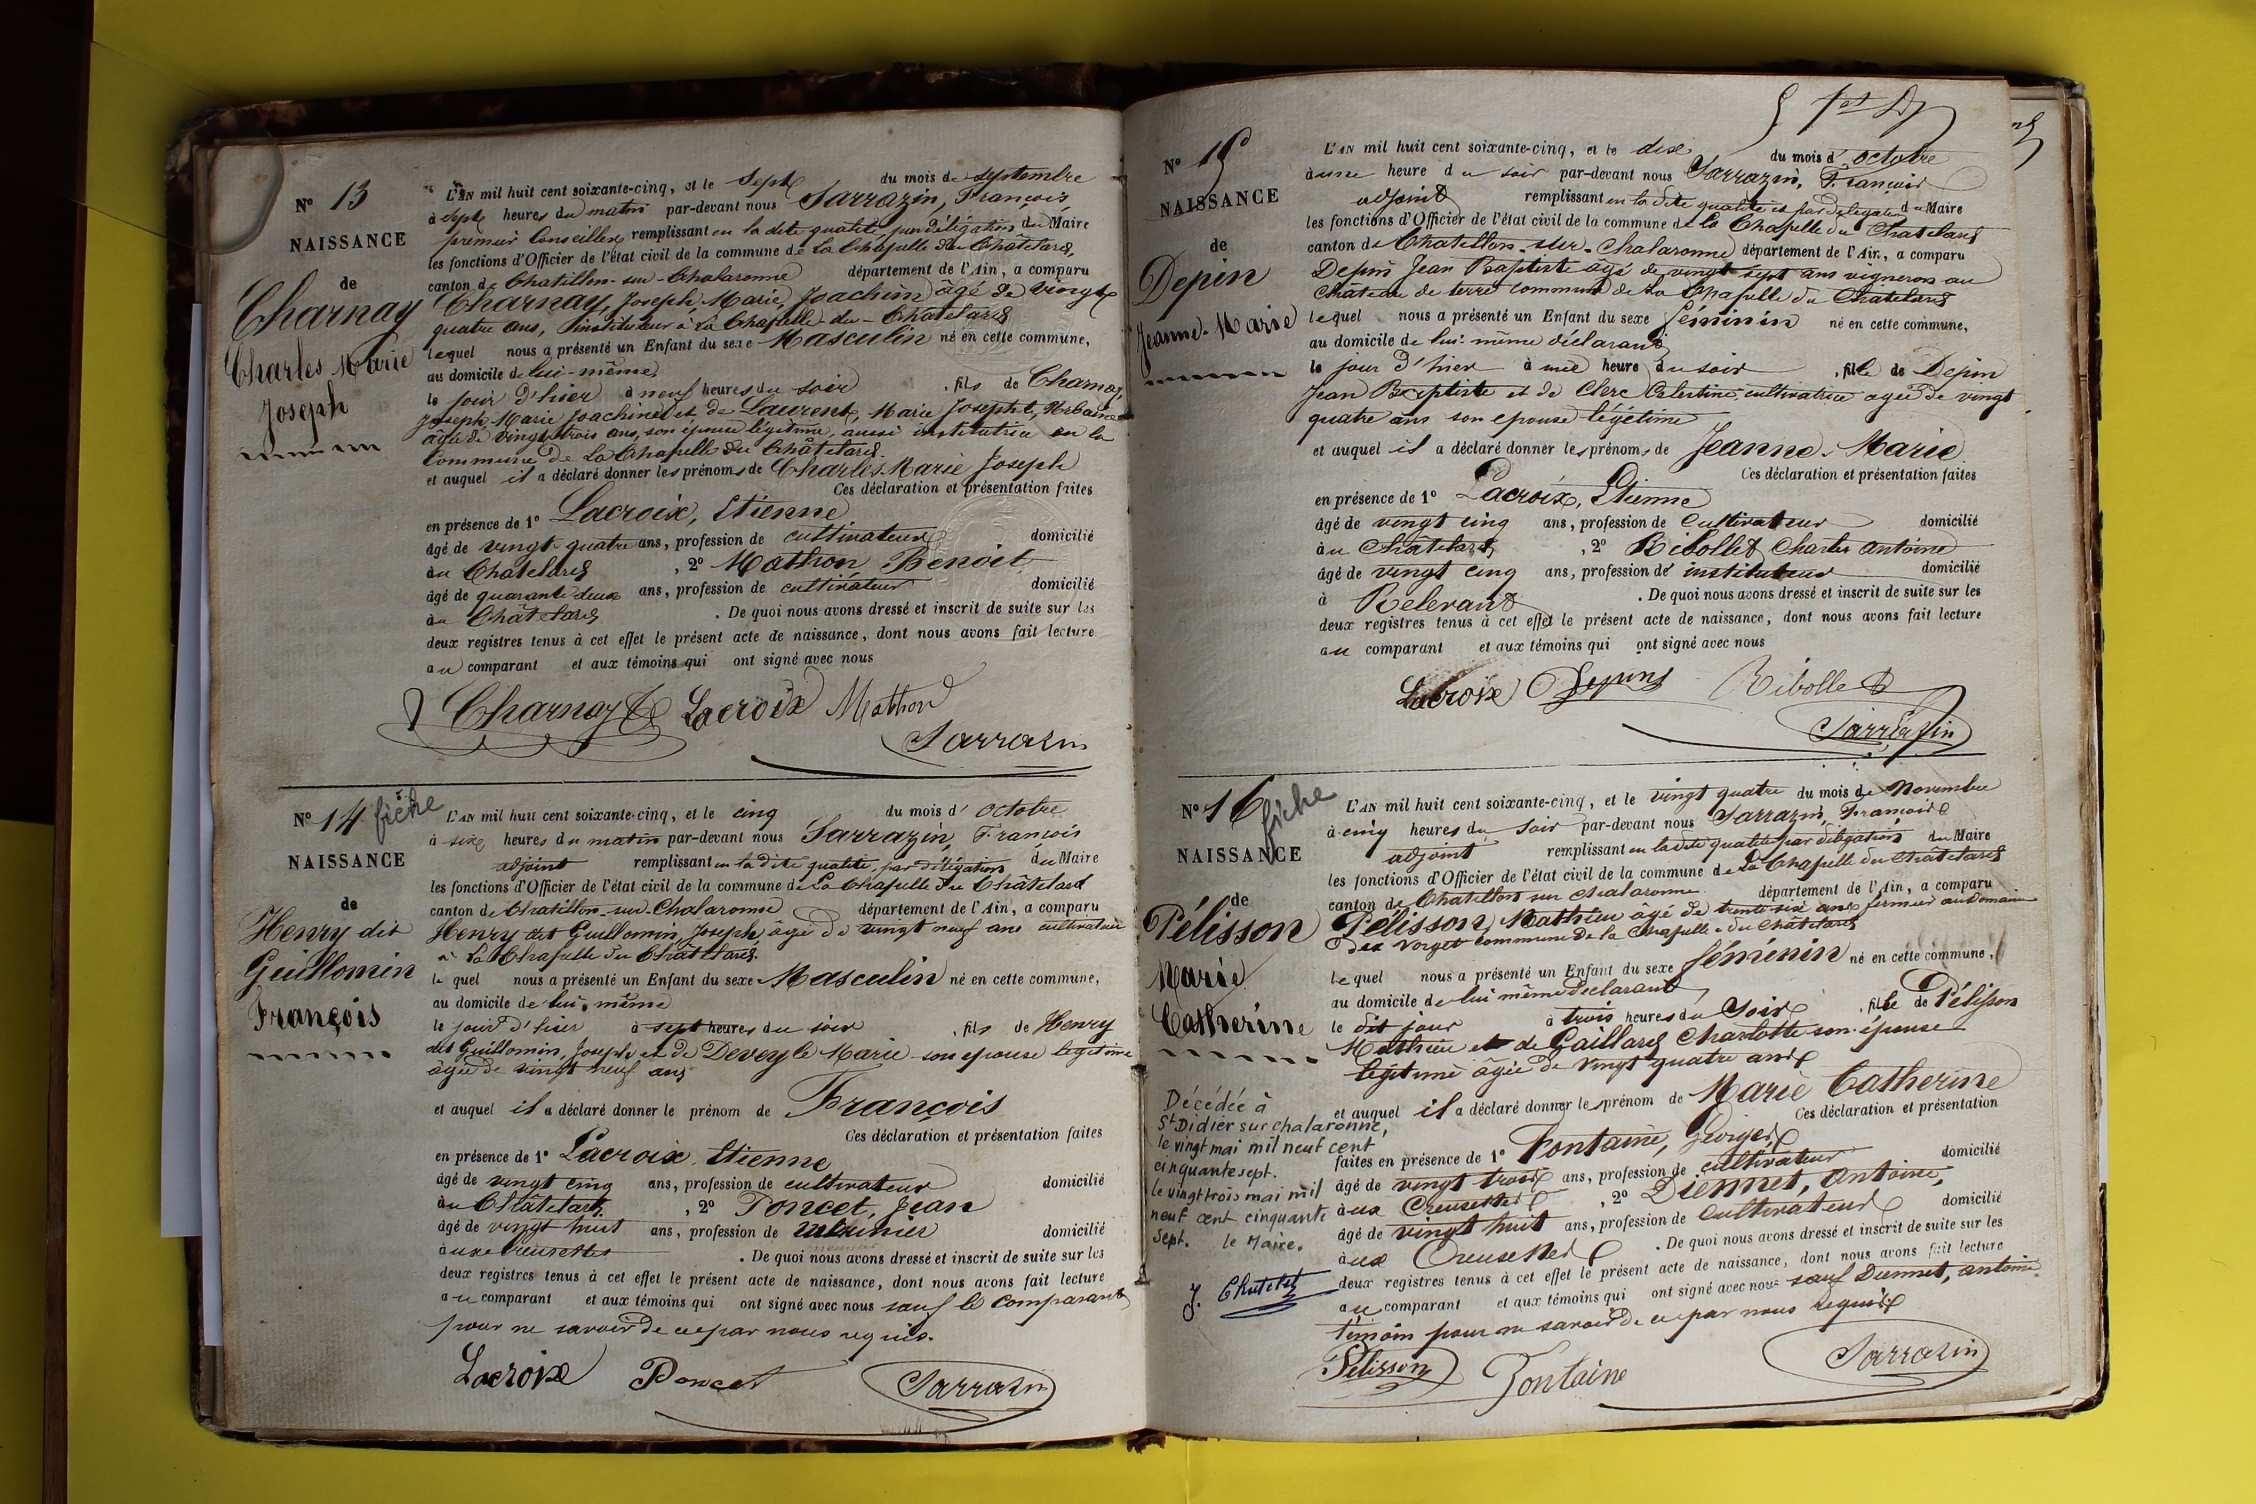 N° 13
NAISSANCE
de
Charnay
Charles Marie
Joseph
L'AN mil huit cent soixante-cinq, et le Sept du mois de septembre
à sept heures du matin par-devant nous Sarrazin, François
premier Conseiller remplissant en la dite qualité par délégation du Maire
les fonctions d'Officier de l'état civil de la commune de La Chapelle du Châtelard,
canton de Chatillon-sur-Chalaronne département de l'Ain, a comparu
Charnay, Joseph Marie Joachim âgé de vingt
quatre ans, Instituteur à La Chapelle-du-Chatelard
lequel nous a présenté un Enfant du sexe Masculin né en cette commune,
au domicile de lui-même
le jour d'hier à neuf heures du soir, fils de Charnay,
Joseph Marie Joachim et de Laurent, Marie Josephte, Urbaine
âgée de vingt trois ans, son épouse légitime, aussi institutrice en la
Commune de La Chapelle du Châtelard.
et auquel il a déclaré donner les prénoms de Charles Marie Joseph
Ces déclaration et présentation faites
en présence de 1° Lacroix, Etienne
âgé de vingt-quatre ans, profession de cultivateur domicilié
au Chatelard, 2° Mathon Benoit
âgé de quarante deux ans, profession de cultivateur domicilié
au Châtelard. De quoi nous avons dressé et inscrit de suite sur les
deux registres tenus à cet effet le présent acte de naissance, dont nous avons fait lecture
au comparant et aux témoins qui ont signé avec nous
Charnay Lacroix Mathon
Sarrazin
N° 14 fiche
NAISSANCE
de
Henry dit
Guillomin
François
L'AN mil huit cent soixante-cinq, et le cinq du mois d'octobre
à six heures du matin par-devant nous Sarrazin, François
adjoint remplissant en la dite qualité, par délégation du Maire
les fonctions d'Officier de l'état civil de la commune de La Chapelle du Châtelard
canton de Chatillon-sur-Chalaronne département de l'Ain, a comparu
Henry dit Guillomin, Joseph âgé de vingt neuf ans cultivateur
à La Chapelle du Châtelard.
le quel nous a présenté un Enfant du sexe Masculin né en cette commune,
au domicile de lui, même
le jour d'hier à sept heures du soir, fils de Henry
dit Guillomin, Joseph et de Deveyle Marie son épouse légitime
âgée de vingt neuf ans
et auquel il a déclaré donner le prénom de François
Ces déclaration et présentation faites
en présence de 1° Lacroix Etienne
âgé de vingt cinq ans, profession de cultivateur domicilié
au Châtelard, 2° Poncet, Jean
âgé de vingt huit ans, profession de domicilié
aux Creusettes. De quoi nous avons dressé et inscrit de suite sur les
deux registres tenus à cet effet le présent acte de naissance, dont nous avons fait lecture
au comparant et aux témoins qui ont signé avec nous sauf le comparant
pour ne savoir de ce par nous requis.
Lacroix Poncet Sarrazin
N° 15
NAISSANCE
de
Depin
Jeanne-Marie
L'AN mil huit cent soixante-cinq, et le dix du mois d'octobre
à une heure du soir par-devant nous Sarrazin, François
adjoint remplissant en la dite qualité et par délégation du Maire
les fonctions d'Officier de l'état civil de la commune de la Chapelle du Chatelard
canton de Chatillon-sur-Chalaronne département de l'Ain, a comparu
Depin Jean Baptiste âgé de vingt sept ans vigneron au
Château de terre commune de La Chapelle du Chatelard
lequel nous a présenté un Enfant du sexe féminin né en cette commune,
au domicile de lui-même déclarant
le jour d'hier à une heure du soir, fille de Depin
Jean Baptiste et de Clerc Celestine, cultivatrice agée de vingt
quatre ans son epouse légétime
et auquel il a déclaré donner les prénoms de Jeanne-Marie
Ces déclaration et présentation faites
en présence de 1° Lacroix, Etienne
âgé de vingt cinq ans, profession de Cultivateur domicilié
au Châtelard, 2° Ribollet Charles Antoine
âgé de vingt cinq ans, profession de instituteur domicilié
à Relevant. De quoi nous avons dressé et inscrit de suite sur les
deux registres tenus à cet effet le présent acte de naissance, dont nous avons fait lecture
au comparant et aux témoins qui ont signé avec nous
Lacroix Depin Ribollet
Sarrazin
N° 16 fiche
NAISSANCE
de
Pélisson
Marie
Catherine
Décédée à
St Didier sur chalaronne,
le vingt mai mil neuf cent
cinquante sept.
le vingt trois mai mil
neuf cent cinquante
sept. le Maire.
L'AN mil huit cent soixante-cinq, et le vingt quatre du mois de Novembre
à cinq heures du soir par-devant nous Sarrazin, François
adjoint remplissant en la dite qualité par délégation du Maire
les fonctions d'Officier de l'état civil de la commune de La Chapelle du Châtelard
canton de Chatillon sur Chalaronne département de l'Ain, a comparu
Pélisson, Mathieu âgé de trente-six ans fermier au Domaine
des Vorget commune de la Chapelle-du Châtelard
le quel nous a présenté un Enfant du sexe féminin né en cette commune,
au domicile de lui même déclarant
le dit jour à trois heures du Soir, fille de Pélisson
Mathieu et de Gaillard Charlotte son épouse
légitime âgée de vingt quatre ans
et auquel il a déclaré donner les prénom de Marie Catherine
Ces déclaration et présentation
faites en présence de 1° Fontaine, Georges
âgé de vingt trois ans, profession de cultivateur domicilié
aux Creusettes, 2° Diennet, Antoine,
âgé de vingt huit ans, profession de Cultivateur domicilié
aux Creusettes. De quoi nous avons dressé et inscrit de suite sur les
deux registres tenus à cet effet le présent acte de naissance, dont nous avons fait lecture
au comparant et aux témoins qui ont signé avec nous sauf Diennet, antoine
témoin pour ne savoir de ce par nous requis
Pélisson Fontaine Sarrazin